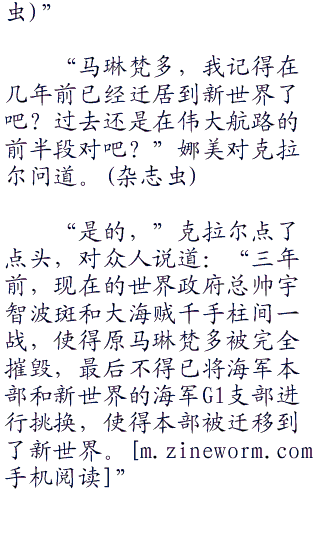 虫)”
“马琳梵多，我记得在
几年前已经迁居到新世界了
吧？过去还是在伟大航路的
前半段对吧？”娜美对克拉
尔问道。(杂志虫)
“是的，”克拉尔点了
点头，对众人说道：“三年
前，现在的世界政府总帅宇
智波斑和大海贼千手柱间一
战，使得原马琳梵多被完全
摧毁，最后不得已将海军本
部和新世界的海军G1支部进
行挑换，使得本部被迁移到
了新世界。[m.zineworm.com
手机阅读]”